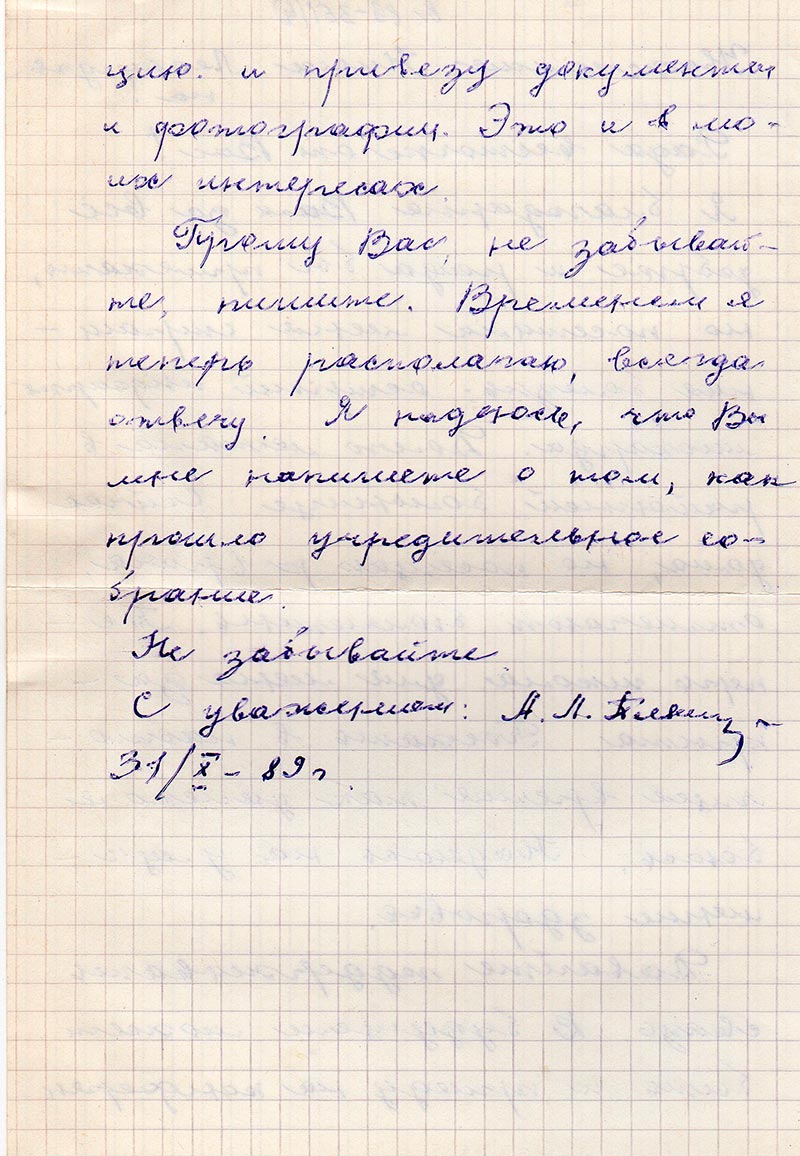 цию. и привезу документы
и фотографии. Это и в мо-
их интересах
Прошу Вас, не забывай-
те, пишите. Временем я
теперь располагаю, всегда
отвечу. Я надеюсь, что Вы
мне напишете о том, как
прошло учредительное со-
брание.
Не забывайте
С уважением: А. М.
31/X - 89 г.